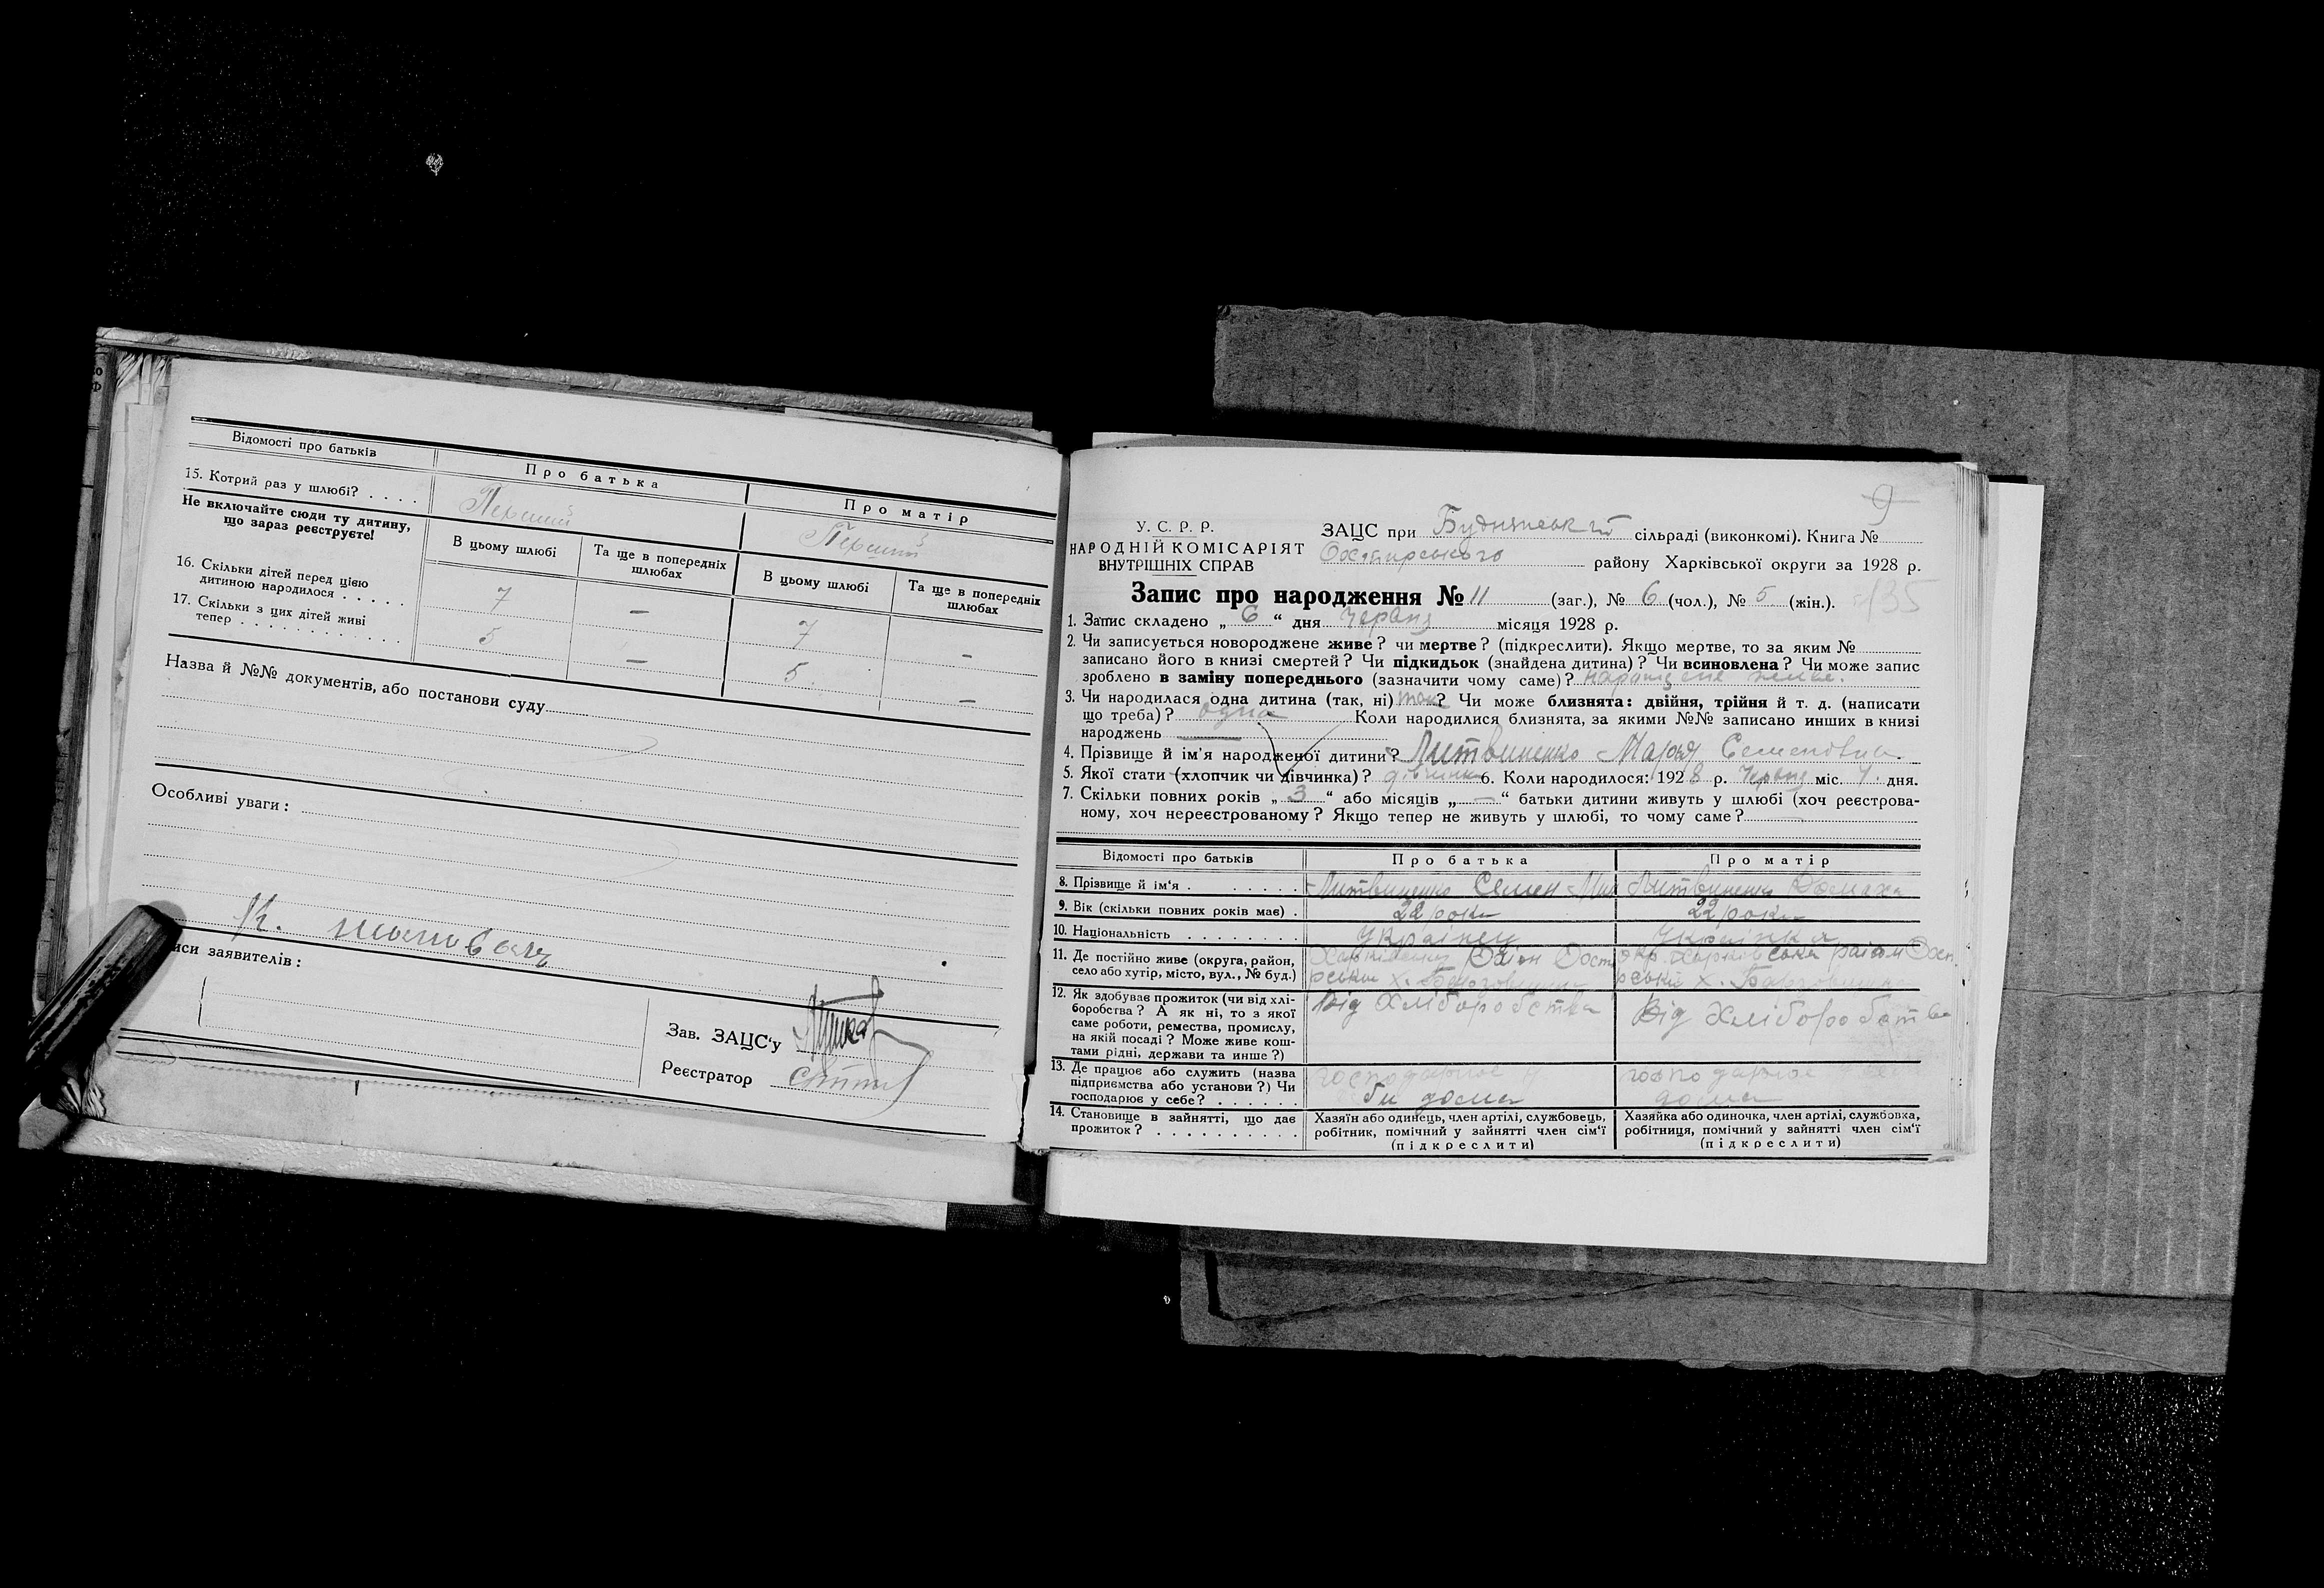 Відомості про батьків
Про батька
Про матір
15. Котрий раз у шлюбі? . . . .
Перший
Перший
Не включайте сюди ту дитину,
що зараз реєструєте!
В цьому шлюбі
Та ще в попередніх
шлюбах
В цьому шлюбі
Та ще в попередніх
шлюбах
16. Скільки дітей перед цією
дитиною народилося . . . . .
7
—
7
—
17. Скільки з цих дітей живі
тепер . . . . . . . . . . . .
5
—
5
—
Назва й №№ документів, або постанови суду
Особливі уваги:
иси заявителів:
Зав. ЗАЦС‘у
Реєстратор
9
У. С. Р. Р.
НАРОДНІЙ КОМІСАРІЯТ
ВНУТРІШНІХ СПРАВ
ЗАЦС при сільраді (виконкомі). Книга №
Охтирського району Харківської округи за 1928 р.
Запис про народження № 11 (заг.), № 6 (чол.), № 5 (жін.).
135
1. Запис складено „ 6 “ дня Червня місяця 1928 р.
2. Чи записується новороджене живе? чи мертве? (підкреслити). Якщо мертве, то за яким №
записано його в книзі смертей? Чи підкидьок (знайдена дитина)? Чи всиновлена? Чи може запис
зроблено в заміну попереднього (зазначити чому саме)? живе.
3. Чи народилася одна дитина (так, ні) так? Чи може близнята: двійня, трійня й т. д. (написати
що треба)? одна Коли народилися близнята, за якими №№ записано инших в книзі
народжень —
4. Прізвище й ім‘я народженої дитини? Литвиненко Марія Семеновна
5. Якої стати (хлопчик чи дівчинка)? дівчинка 6. Коли народилося: 1928 р. Червня міс. 4 дня.
7. Скільки повних років „ 3 “ або місяців „ — “ батьки дитини живуть у шлюбі (хоч реєстрова-
ному, хоч нереєстрованому? Якщо тепер не живуть у шлюбі, то чому саме? —
Відомості про батьків
Про батька
Про матір
8. Прізвище й ім‘я . . . . . . .
Литвиненко Семен
Литвиненко Домаха
9. Вік (скільки повних років має) .
22 роки
22 роки
10. Національність . . . . . . . .
Українец
Українка
11. Де постійно живе (округа, район,
село або хутір, місто, вул., № буд.)
12. Як здобуває прожиток (чи від хлі-
боробства? А як ні, то з якої
саме роботи, ремества, промислу,
на якій посаді? Може живе кош-
тами рідні, держави та инше?)
Від Хліборобства
Від Хліборобства
13. Де працює або служить (назва
підприємства або установи?) Чи
господарює у себе? . . . . . .
господарює
дома
господарює
дома
14. Становище в зайнятті, що дає
прожиток? . . . . . . . . . . .
Хазяїн або одинець, член артілі, службовець,
робітник, помічний у зайнятті член сім‘ї
(підкреслити)
Хазяйка або одиночка, член артілі, службовка,
робітниця, помічний у зайнятті член сім‘ї
(підкреслити)